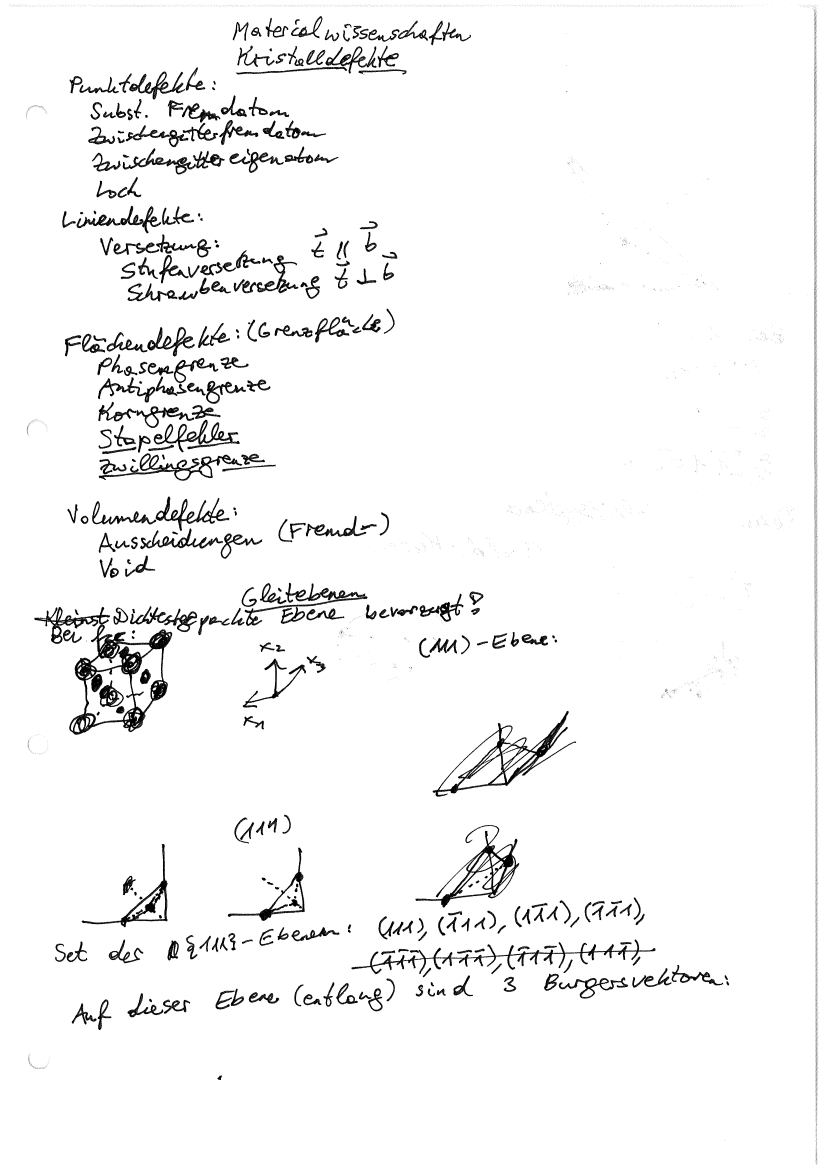 Materialwissenschaften
Kristalldefekte
Punktdefekte:
Subst. Fremdatom
Zwischengitterfremdatom
Zwischengittereigenatom
Loch
Liniendefekte:
Versetzung: t⃗ || b⃗
Stufenversetzung t⃗ ⊥ b⃗
Schraubenversetzung
Flächendefekte: (Grenzfläche)
Phasengrenze
Antiphasengrenze
Korngrenze
Stapelfehler
Zwillingsgrenze
Volumendefekte:
Ausscheidungen (Fremd-)
Void
Gleitebenen
Kleinst Dichtestgepackte Ebene bevorzugt!
Bei fcc:
(111)-Ebene:
x2
x3
x1
(111)
Set der {111}-Ebenen: (111), (1̄11), (11̄1), (1̄1̄1),
(1̄1̄1̄), (11̄1̄), (1̄11̄), (111̄),
Auf dieser Ebene (entlang) sind 3 Burgersvektoren: